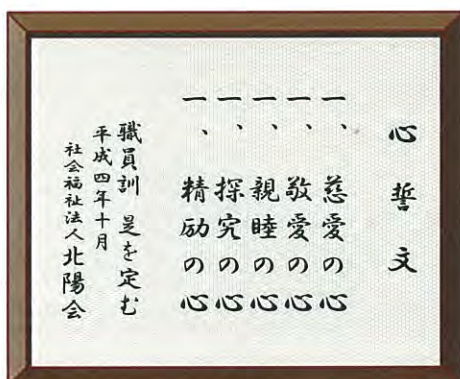 心誓文
一、慈愛の心
一、敬愛の心
一、親睦の心
一、探究の心
一、精励の心
職員訓 是を定む
平成四年十月
社会福祉法人北陽会